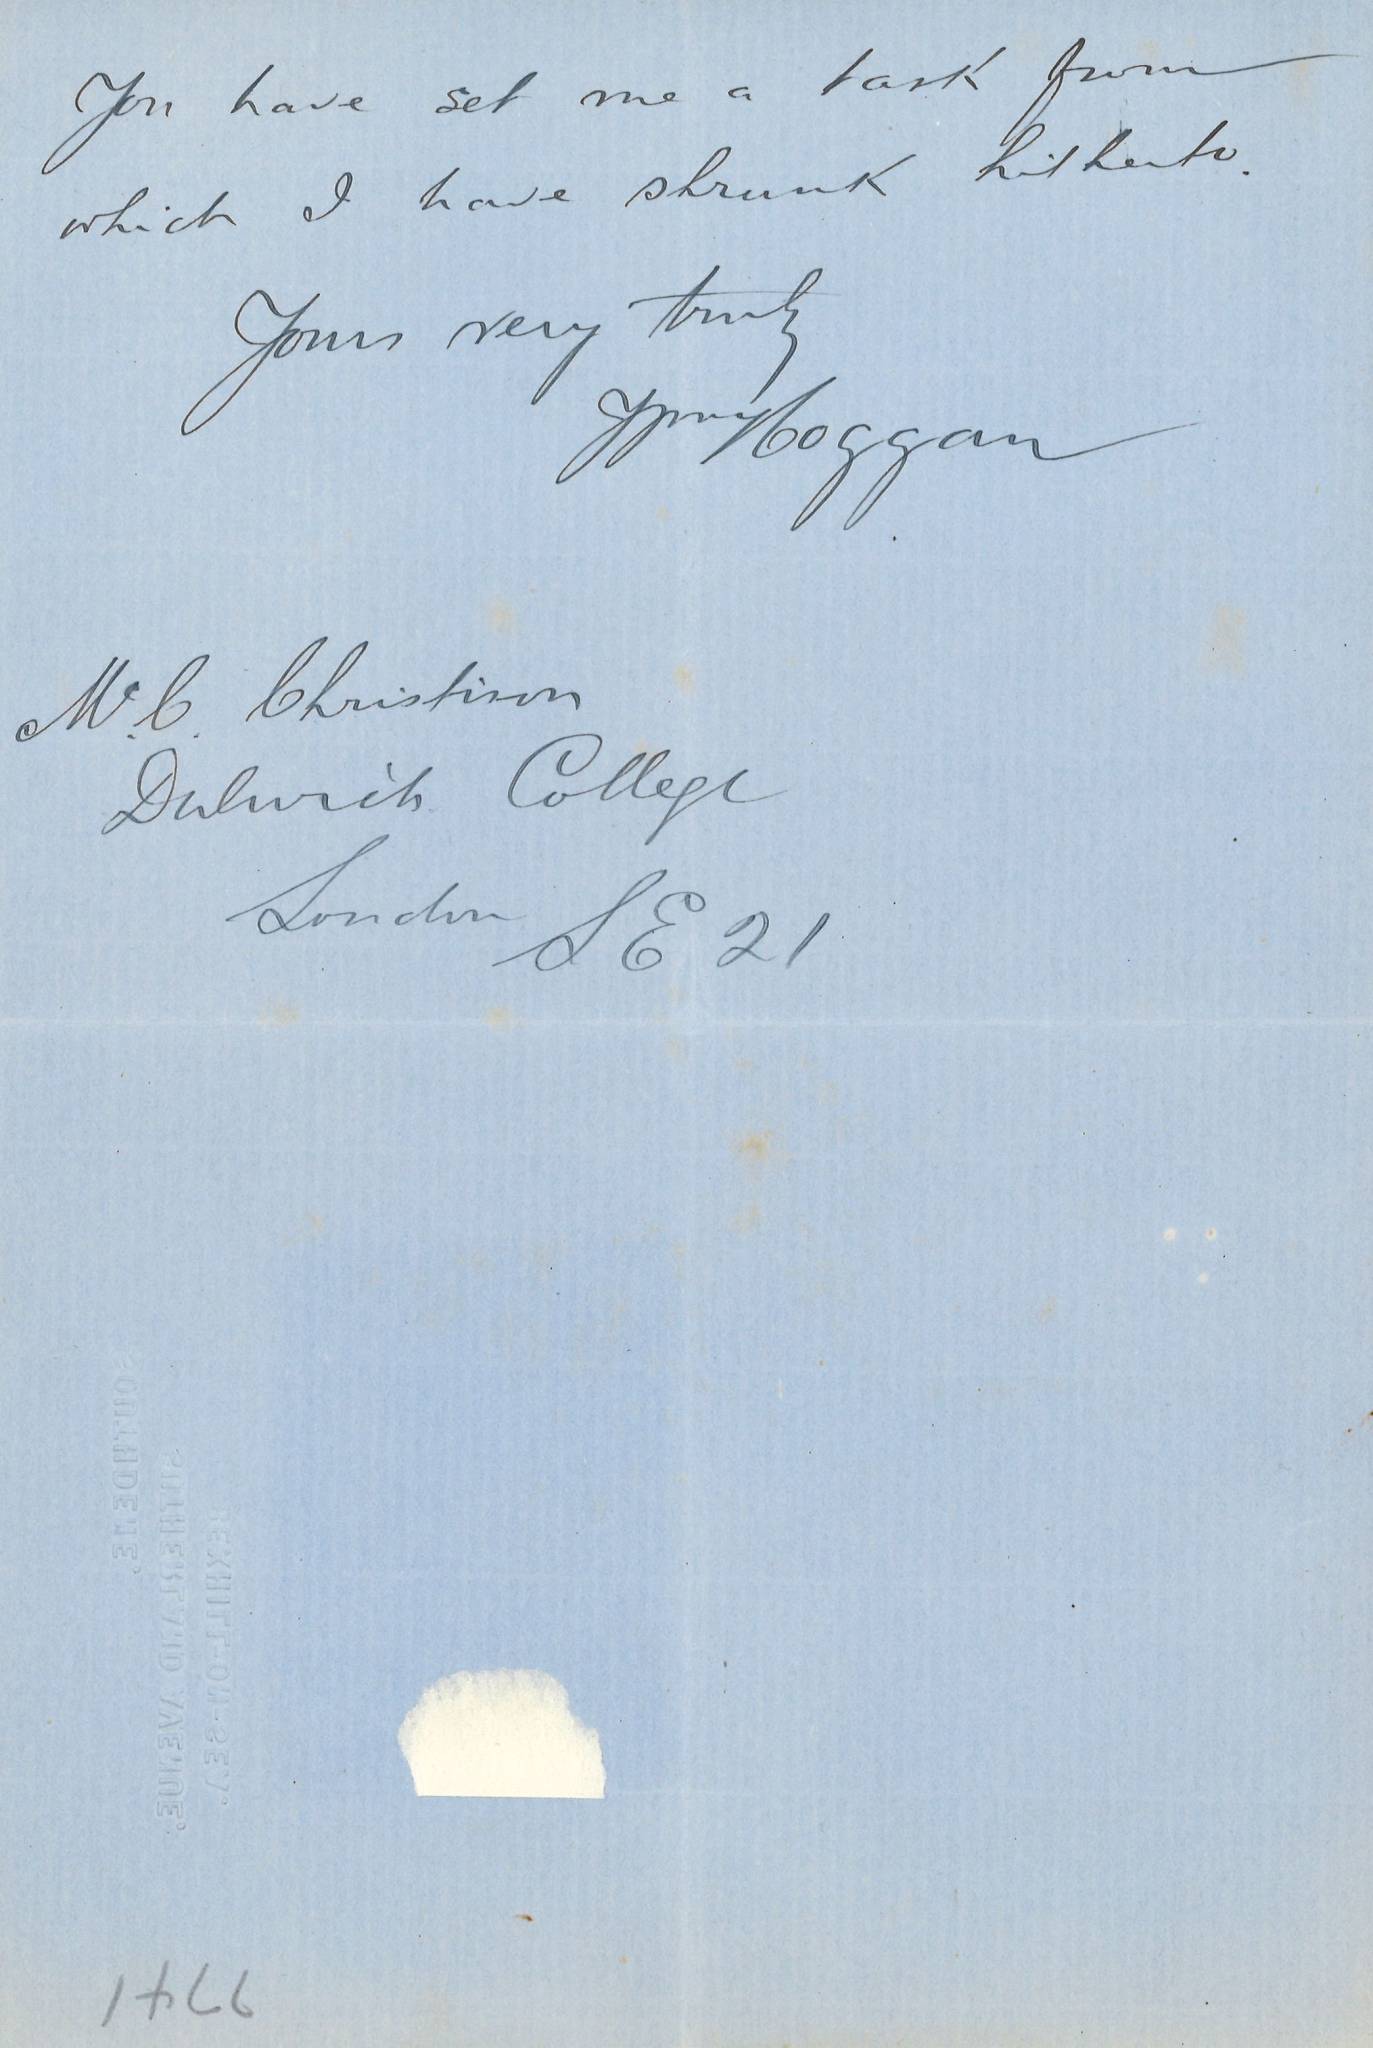 You have set me a task from
which I have shrunk hitherto.
Yours very truly
Hoggan
Mr. C. Christison
Dulwich College
London SE 21
SOUTHDENE.
SUTHERLAND AVENUE.
BEXHILL-ON-SEA.